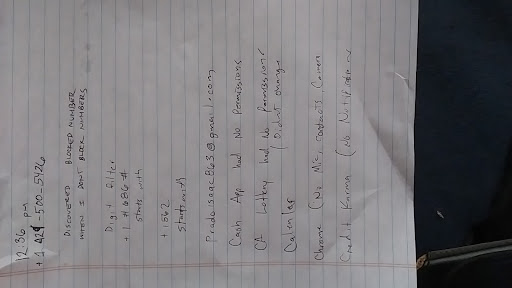 12:36 pm
+1 424-500-5426
DISCOVERED BLOCKED NUMBER
WHEN I DONT BLOCK NUMBERS
Digit Filter
+1 #686-#
starts with
+1562
starts with
Pradoisaac863@gmail.com
Cash App had No Permissions
CA Lottery had No Permissions
Calender (Didnt change
Chrome (No Mic, contacts, Camera
Credit Karma (No Notifications